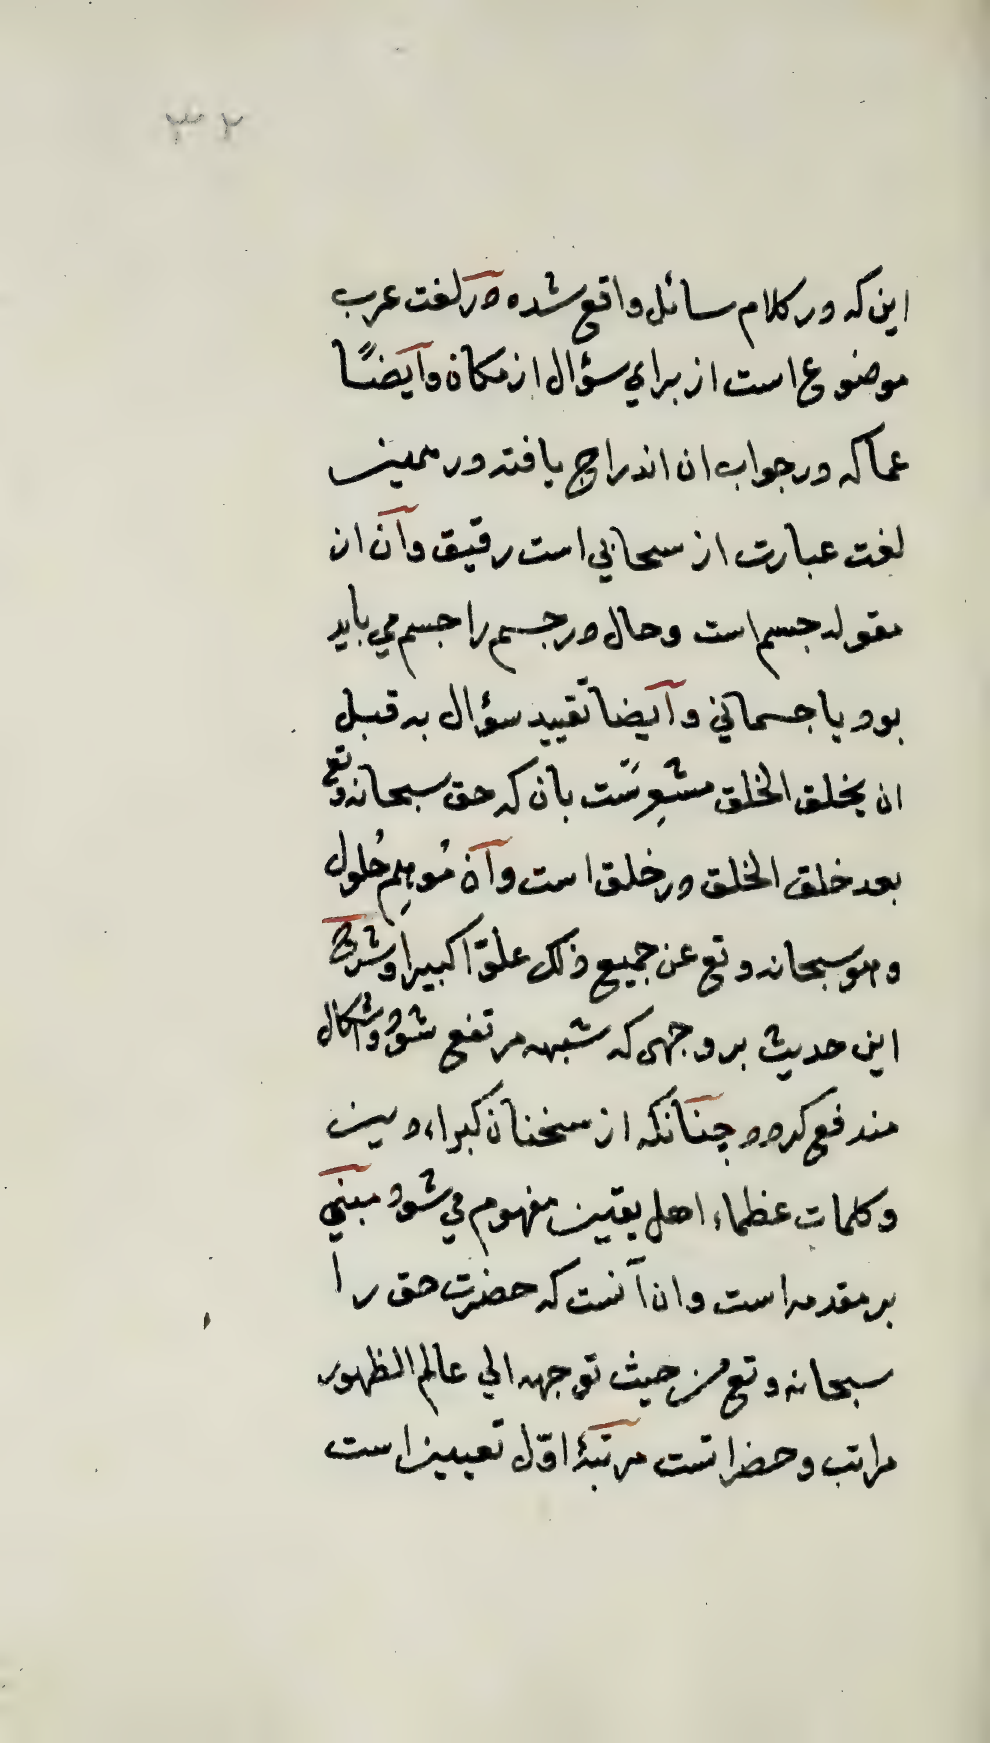 ٣٢
این که در کلام سائل واقع شده در لغت عرب
موضوع است از برای سؤال از مکان و ایضًا
عما که در جواب ان اندراج یافته در همین
لغت عبارت از سحابی است رقیق و آن از
مقوله جسم است و حال در جسم را جسم می باید
بود یا جسمانی و ایضا تقیید سؤال به قبل
ان یخلق الخلق مشعِرَست بان که حق سبحانه وتع
بعد خلق الخلق در خلق است و آن مُوهِم حُلول
و هو سبحانه و تع عن جمیع ذلک علوّا کبیرا و شرح
این حدیث بر وجهی که شبهه مرتفع شود و اشکال
مندفع کردد چنانکه از سخنان کبراء دین
و کلمات عظماء اهل یقین مفهوم می شود مبنی
بر مقدمه است و ان آنست که حضرت حق را
سبحانه و تع من حیث توجهه الی عالم الظهور
مراتب و حضراتست مرتبهٔ اوّل تعیین است